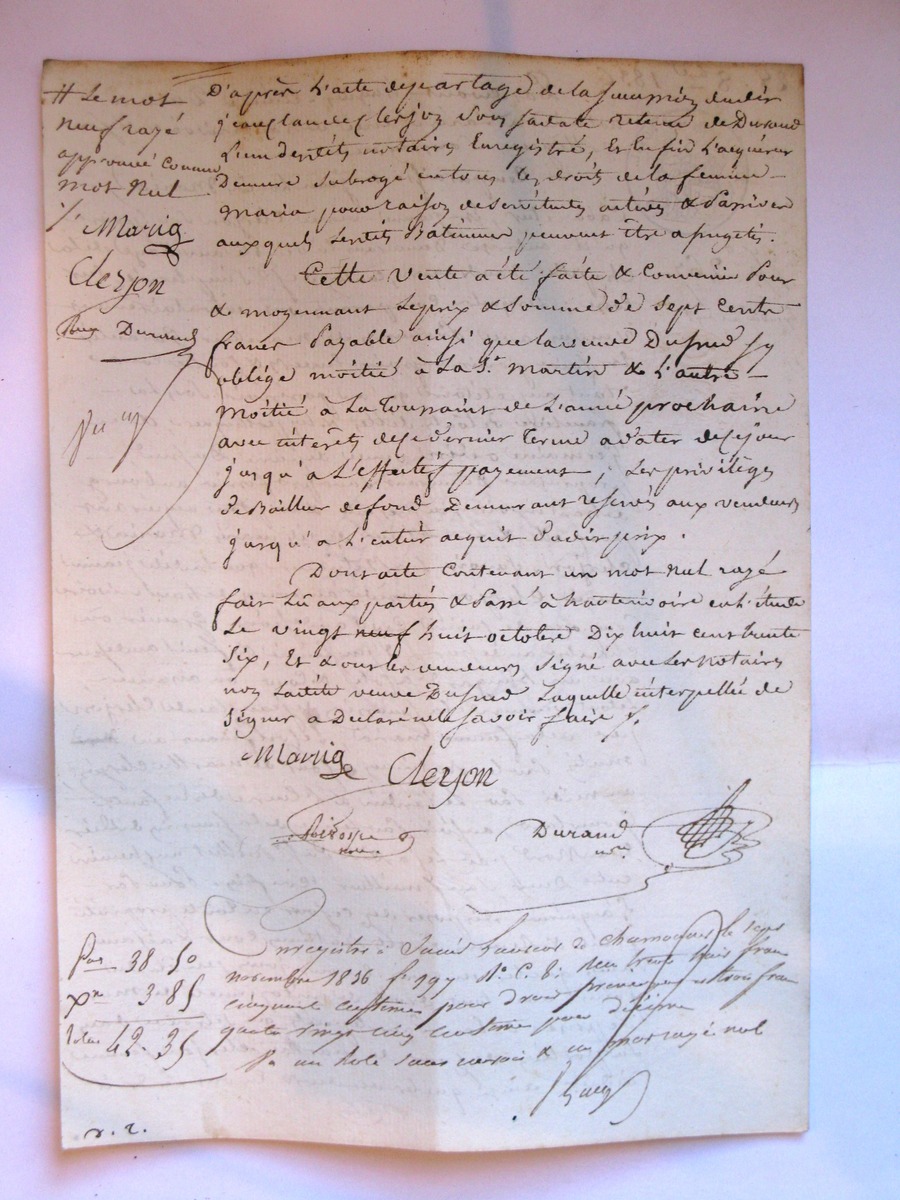 # Le mot
neuf rayé
approuvé comme
mot nul
Marig
Clerjon
Durand
D'après l'acte de partage de la succession dudit
jean claude Clerjon Sous sa date retenu de Durand
l'un desdits notaires Enregistré, Et Enfin l'acquereur
Demeure Subrogé en tous les droits de la femme
Maria pour raison de servitudes actives & passives
auxquels lesdits Bâtiments peuvent être assujetis.
Cette Vente a été faite & Convenue pour
& moyennant le prix & Somme de Sept Cents
francs Payable ainsi que la veuve Dusud s'y
oblige moitié à la St. Martin & l'autre
Moitié à la Toussaint de l'année prochaine
avec intérêts de ce dernier terme a dater de ce jour
jusqu'à l'Effectif payement, Les privilèges
de Bailleur de fond Demeurant reservés aux vendeurs
jusqu'à l'entier acquit dudit prix.
Dont acte Contenant un mot Nul rayé
fait lû aux parties & Passé à hauterivoire en l'étude
Le vingt neuf huit octobre Dix huit cent trente
Six, Et ont les vendeurs Signé avec les Notaires
non ladite veuve Dusud laquelle interpellée de
Signer a Déclaré ne le Savoir faire
Marig Clerjon
Durand
nre
Enregistré à Saint Laurent de Chamousset le sept
novembre 1836 fo 197 No C. 8. Reçu trente huit francs
cinquante centimes pour droit principal et trois francs
quatre vingt cinq centimes pour décime
un rôle sans renvoi & un mot rayé nul
38 50
3 85
Total 42 - 35